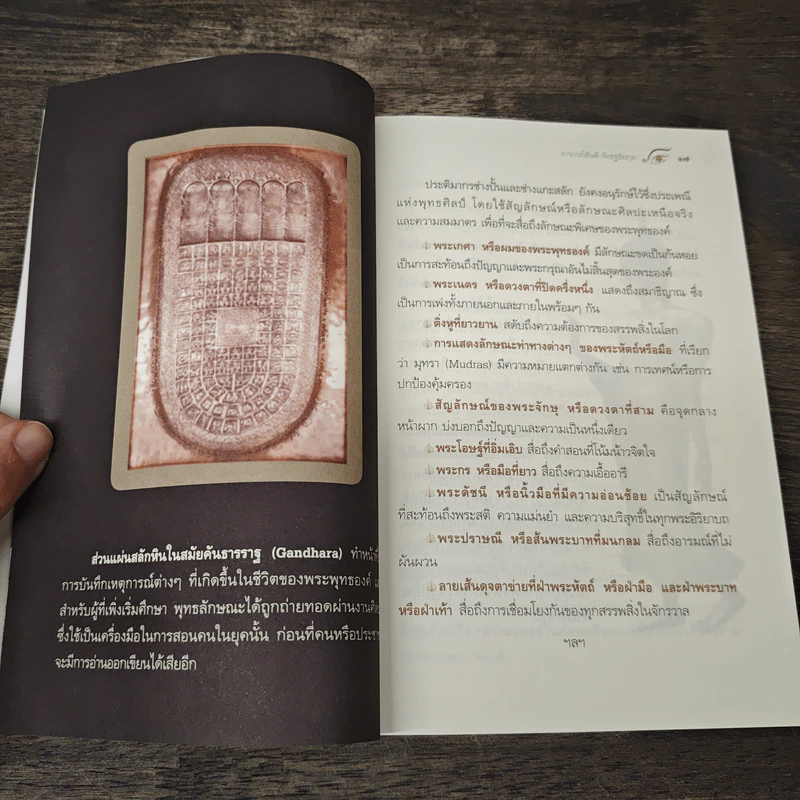 ส่วนแผ่นสลักหินในสมัยคันธารราฐ (Gandhara) ทำหน้าที่
การบันทึกเหตุการณ์ต่างๆ ที่เกิดขึ้นในชีวิตของพระพุทธองค์
สำหรับผู้ที่เพิ่งเริ่มศึกษา พุทธลักษณะได้ถูกถ่ายทอดผ่านงานศิลปะ
ซึ่งใช้เป็นเครื่องมือในการสอนคนในยุคนั้น ก่อนที่คนหรือประชา
จะมีการอ่านออกเขียนได้เสียอีก
๑๗
ประติมากรช่างปั้นและช่างแกะสลัก ยังคงอนุรักษ์ไว้ซึ่งประเพณี
แห่งพุทธศิลป์ โดยใช้สัญลักษณ์หรือลักษณะศิลปะเหนือจริง
และความสมมาตร เพื่อที่จะสื่อถึงลักษณะพิเศษของพระพุทธองค์
พระเกศา หรือผมของพระพุทธองค์ มีลักษณะขดเป็นก้นหอย
เป็นการสะท้อนถึงปัญญาและพระกรุณาอันไม่สิ้นสุดของพระองค์
พระเนตร หรือดวงตาที่ปิดครึ่งหนึ่ง แสดงถึงสมาธิญาณ ซึ่ง
เป็นการเพ่งทั้งภายนอกและภายในพร้อมๆ กัน
ติ่งหูที่ยาวยาน สดับถึงความต้องการของสรรพสิ่งในโลก
การแสดงลักษณะท่าทางต่างๆ ของพระหัตถ์หรือมือ ที่เรียก
ว่า มุทรา (Mudras) มีความหมายแตกต่างกัน เช่น การเทศน์หรือการ
ปกป้องคุ้มครอง
สัญลักษณ์ของพระจักษุ หรือดวงตาที่สาม คือจุดกลาง
หน้าผาก บ่งบอกถึงปัญญาและความเป็นหนึ่งเดียว
พระโอษฐ์ที่อิ่มเอิบ สื่อถึงคำสอนที่โน้มน้าวจิตใจ
พระกร หรือมือที่ยาว สื่อถึงความเอื้ออารี
พระดัชนี หรือนิ้วมือที่มีความอ่อนช้อย เป็นสัญลักษณ์
ที่สะท้อนถึงพระสติ ความแม่นยำ และความบริสุทธิ์ในทุกพระอิริยาบถ
พระปราษณี หรือส้นพระบาทที่มนกลม สื่อถึงอารมณ์ที่ไม่
ผันผวน
ลายเส้นดุจตาข่ายที่ฝ่าพระหัตถ์ หรือฝ่ามือ และฝ่าพระบาท
หรือฝ่าเท้า สื่อถึงการเชื่อมโยงกันของทุกสรรพสิ่งในจักรวาล
ฯลฯ